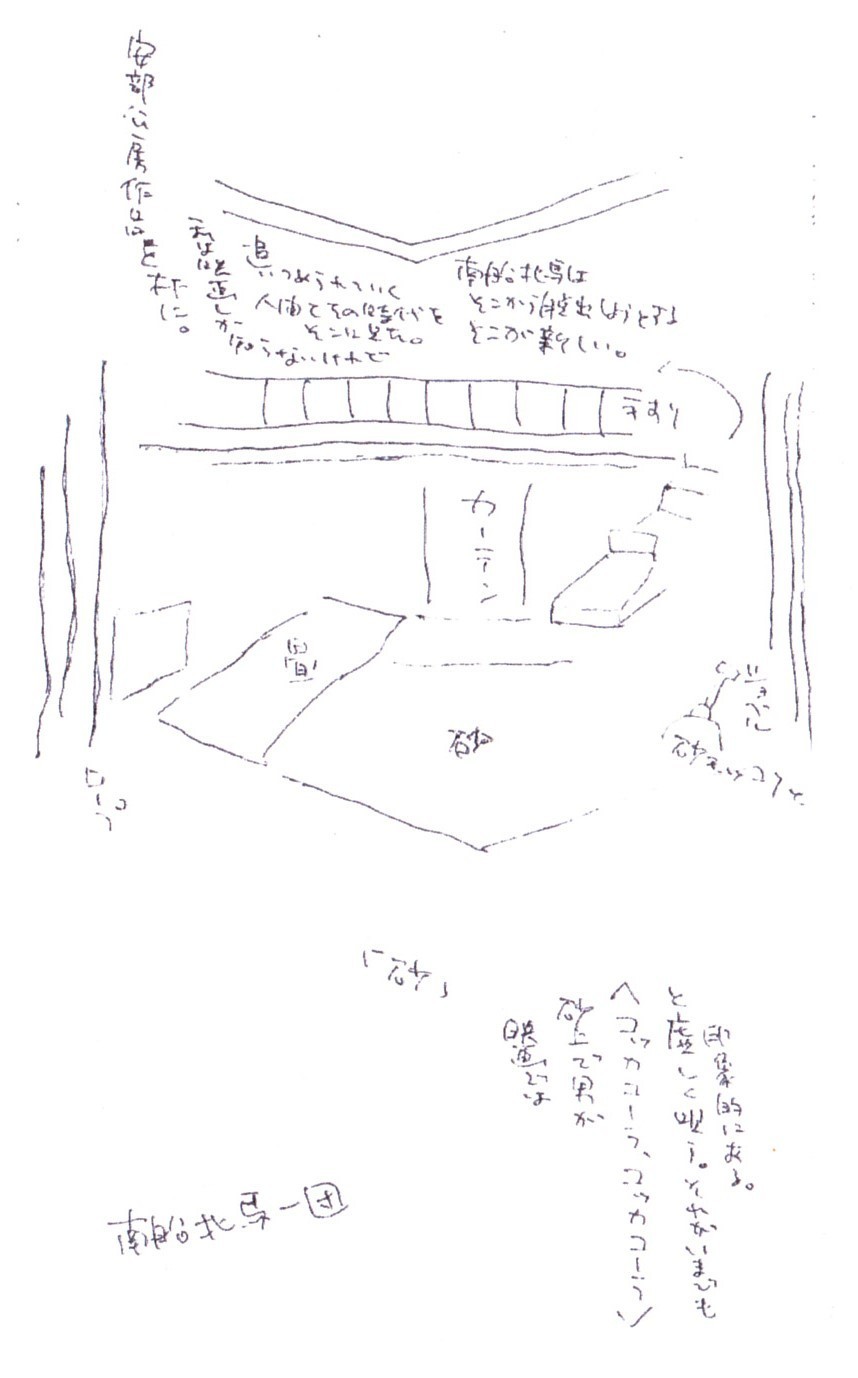 安部公房作品を
下に。
私は映画しか
知らないけれで
追いつめられていく
人間とその時代を
そこに見た。
南船北馬は
そこから脱出しようとする
そこが新しい。
手すり
カーテン
畳
砂
ロープ
「砂」
映画では
砂上で男が
〈コッカコーラ、コッカコーラ〉
と虚しく唄う。それがいまでも
印象的にある。
南船北馬一団